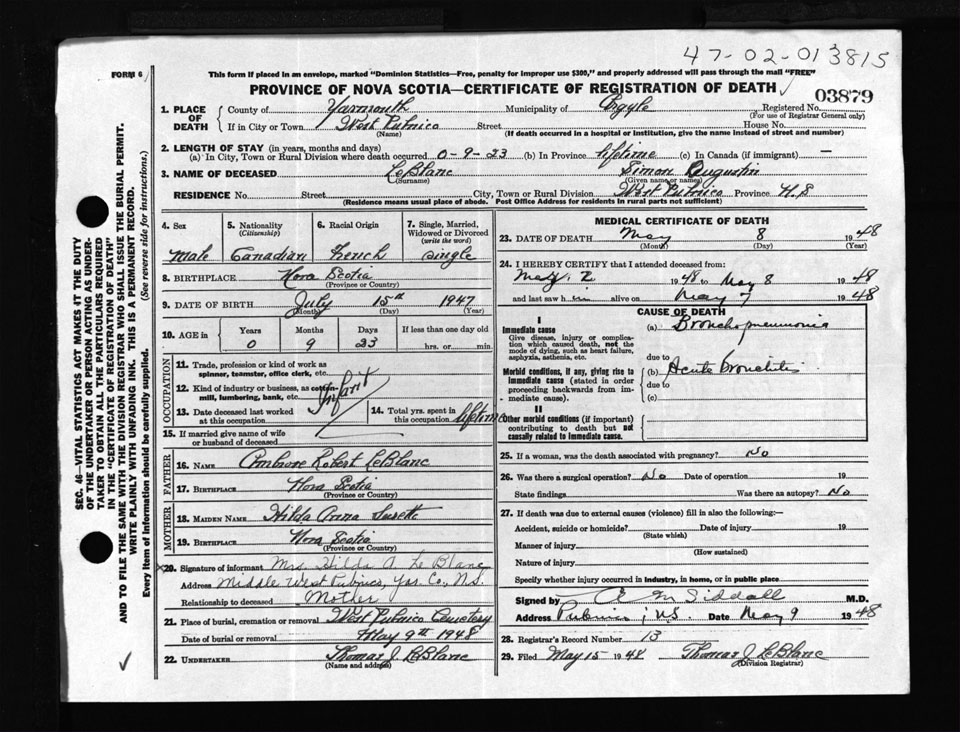 47-02-013815
FORM 6
This form if placed in an envelope, marked "Dominion Statistics—Free, penalty for improper use $300," and properly addressed will pass through the mail "FREE"
PROVINCE OF NOVA SCOTIA—CERTIFICATE OF REGISTRATION OF DEATH
03879
1. PLACE OF DEATH County of Yarmouth Municipality of Argyle Registered No.
(For use of Registrar General only)
If in City or Town West Pubnico Street House No.
(Name) (If death occurred in a hospital or institution, give the name instead of street and number)
2. LENGTH OF STAY (in years, months and days)
(a) In City, Town or Rural Division where death occurred 0-9-23 (b) In Province lifetime (c) In Canada (if immigrant) —
3. NAME OF DECEASED LeBlanc Simon Augustin
(Surname) (Given name or names)
RESIDENCE No. Street City, Town or Rural Division West Pubnico Province N.S
(Residence means usual place of abode. Post Office Address for residents in rural parts not sufficient)
4. Sex 5. Nationality 6. Racial Origin 7. Single, Married, Widowed or Divorced
(Citizenship) (write the word)
Male Canadian French Single
8. BIRTHPLACE Nova Scotia
(Province or Country)
9. DATE OF BIRTH July 15th 1947
(Month) (Day) (Year)
10. AGE in Years Months Days If less than one day old
0 9 23 hrs. or min.
OCCUPATION
11. Trade, profession or kind of work as spinner, teamster, office clerk, etc.
12. Kind of industry or business, as cotton-mill, lumbering, bank, etc.
Infant
13. Date deceased last worked at this occupation
14. Total yrs. spent in this occupation lifetime
15. If married give name of wife or husband of deceased
FATHER
16. NAME Ambrose Robert LeBlanc
17. BIRTHPLACE Nova Scotia
(Province or Country)
MOTHER
18. MAIDEN NAME Hilda Anna Surette
19. BIRTHPLACE Nova Scotia
(Province or Country)
20. Signature of informant Mrs. Hilda A. Le Blanc
Address Middle West Pubnico, Yar. Co., N.S.
Relationship to deceased Mother
21. Place of burial, cremation or removal West Pubnico Cemetery
Date of burial or removal May 9th 1948
22. UNDERTAKER Thomas J LeBlanc
(Name and address)
MEDICAL CERTIFICATE OF DEATH
23. DATE OF DEATH May 8 1948
(Month) (Day) (Year)
24. I HEREBY CERTIFY that I attended deceased from:
May 2 1948 to May 8 1948
and last saw him alive on May 7 1948
CAUSE OF DEATH
I
Immediate cause
Give disease, injury or complication which caused death, not the mode of dying, such as heart failure, asphyxia, asthenia, etc.
(a) Bronchopneumonia
due to
Morbid conditions, if any, giving rise to immediate cause (stated in order proceeding backwards from immediate cause).
(b) Acute bronchitis
due to
(c)
II
Other morbid conditions (if important) contributing to death but not causally related to immediate cause.
25. If a woman, was the death associated with pregnancy? No
26. Was there a surgical operation? No Date of operation 19
State findings Was there autopsy? No
27. If death was due to external causes (violence) fill in also the following:—
Accident, suicide or homicide? Date of injury 19
(State which)
Manner of injury
(How sustained)
Nature of injury
Specify whether injury occurred in industry, in home, or in public place
Signed by A M Siddall M.D.
Address Pubnico, N.S. Date May 9 1948
28. Registrar's Record Number 13
29. Filed May 15 1948 Thomas J LeBlanc
(Division Registrar)
SEC. 46—VITAL STATISTICS ACT MAKES IT THE DUTY
OF THE UNDERTAKER OR PERSON ACTING AS UNDER-
TAKER TO OBTAIN ALL THE PARTICULARS REQUIRED
IN THE "CERTIFICATE OF REGISTRATION OF DEATH"
AND TO FILE THE SAME WITH THE DIVISION REGISTRAR WHO SHALL ISSUE THE BURIAL PERMIT.
WRITE PLAINLY WITH UNFADING INK. THIS IS A PERMANENT RECORD.
Every Item of Information should be carefully supplied. (See reverse side for instructions.)